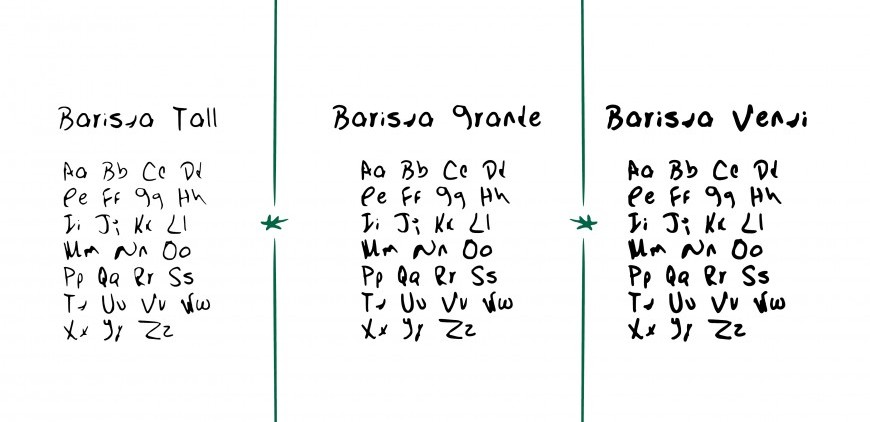 Barista Tall
Aa Bb Cc Dd
Ee Ff Gg Hh
Ii Jj Kk Ll
Mm Nn Oo
Pp Qq Rr Ss
Tt Uu Vv Ww
Xx Yy Zz
Barista Grande
Aa Bb Cc Dd
Ee Ff Gg Hh
Ii Jj Kk Ll
Mm Nn Oo
Pp Qq Rr Ss
Tt Uu Vv Ww
Xx Yy Zz
Barista Venti
Aa Bb Cc Dd
Ee Ff Gg Hh
Ii Jj Kk Ll
Mm Nn Oo
Pp Qq Rr Ss
Tt Uu Vv Ww
Xx Yy Zz